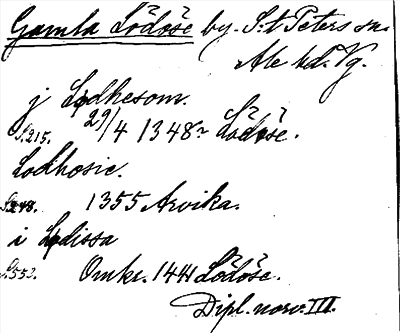 Gamla Lödöse by. S:t Peters sn.
Ale hd. Vg.
j Lødhesom.
S. 215. 29/4 1348 Lödöse.
Lodhosie.
S. 248. 1355 Arvika.
i Lødissa
S. 552. Omkr. 1441 Lödöse.
Dipl. norv. III.